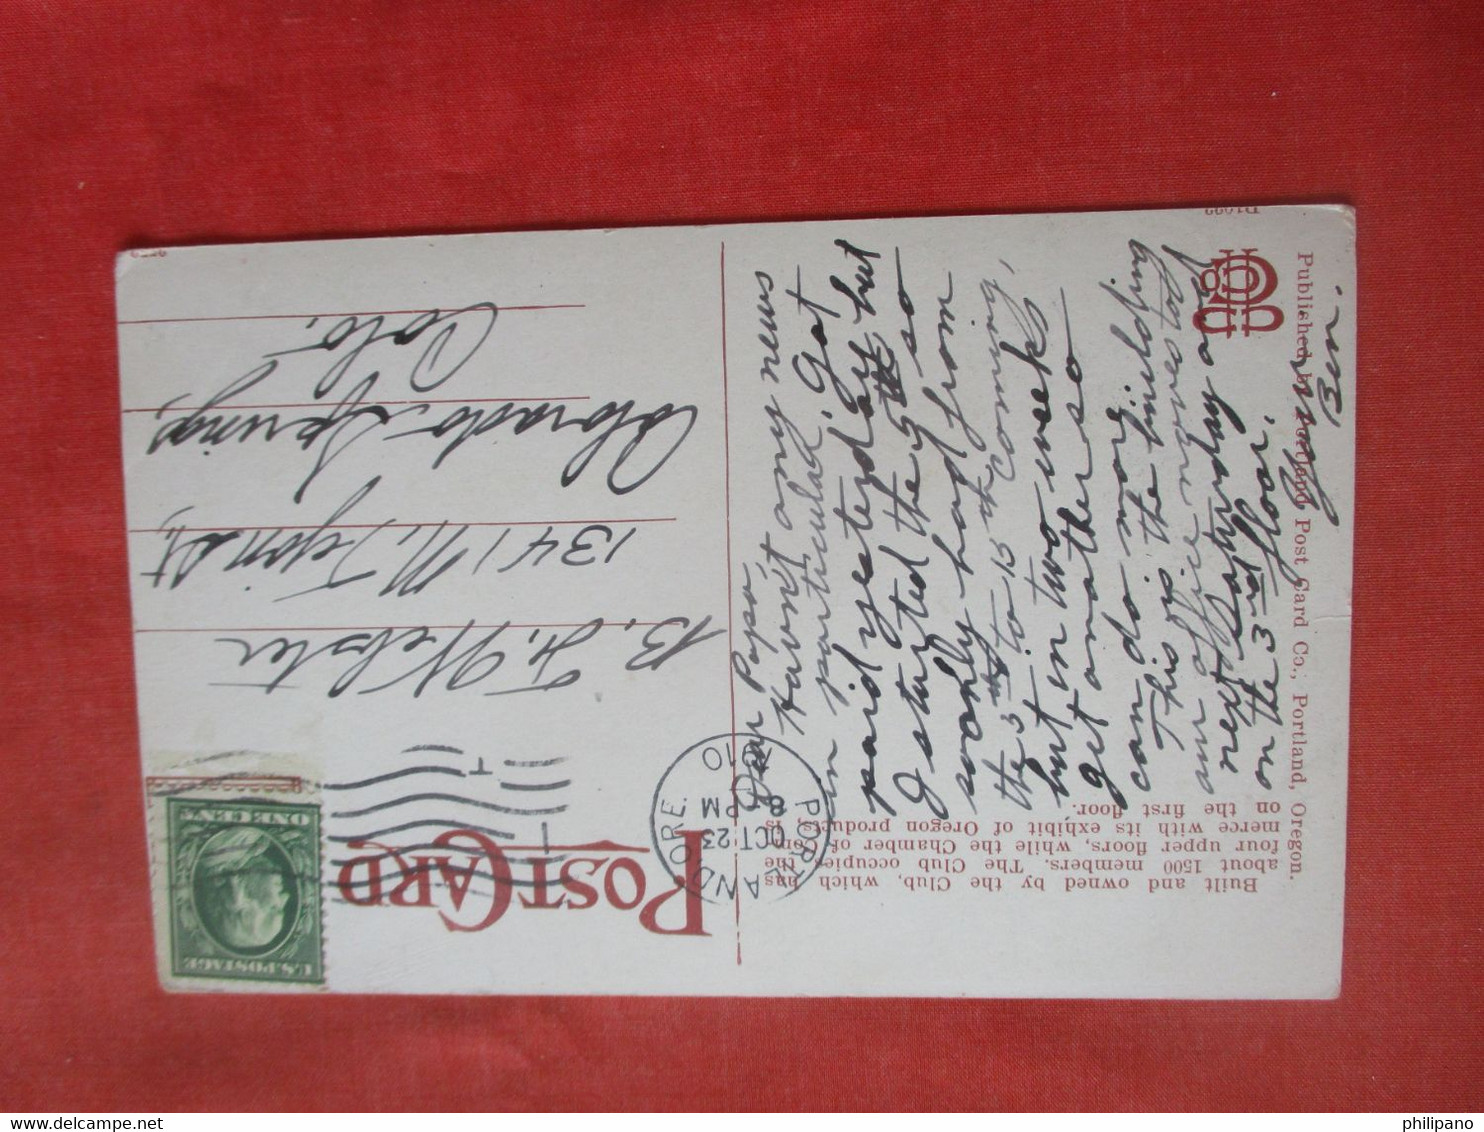 POST CARD
U.S. POSTAGE
ONE CENT
PORTLAND, ORE.
OCT 23
8 PM
1910
B. F. Webster
1341 N. Tejon St,
Colorado Springs,
Colo.
Dear Papa,
Haven't any news
in particular. Got
paid yesterday but
I started the 9th so
only had from
the to 15th coming,
but in two weeks
get another so
can do more
This is the building
our office moves to
next Saturday and
on the 3rd floor.
Your
Ben.
Built and owned by the Club, which has
about 1500 members. The Club occupies the
four upper floors, while the Chamber of Com-
merce with its exhibit of Oregon products, is
on the first floor.
Published by Portland Post Card Co., Portland, Oregon.